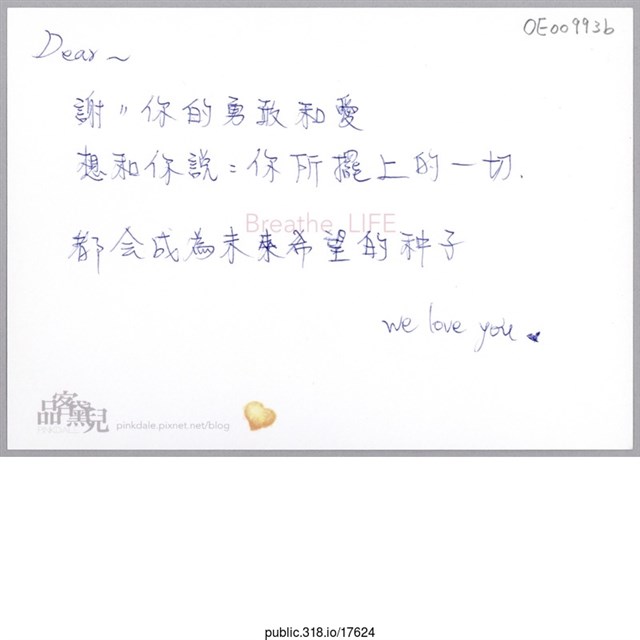 OE00993b
Dear~
謝〃你的勇敢和愛
想和你說：你所擺上的一切.
Breathe LIFE
都会成為未來希望的种子
we love you
品客黛兒
PINKDALE
pinkdale.pixnet.net/blog
public.318.io/17624